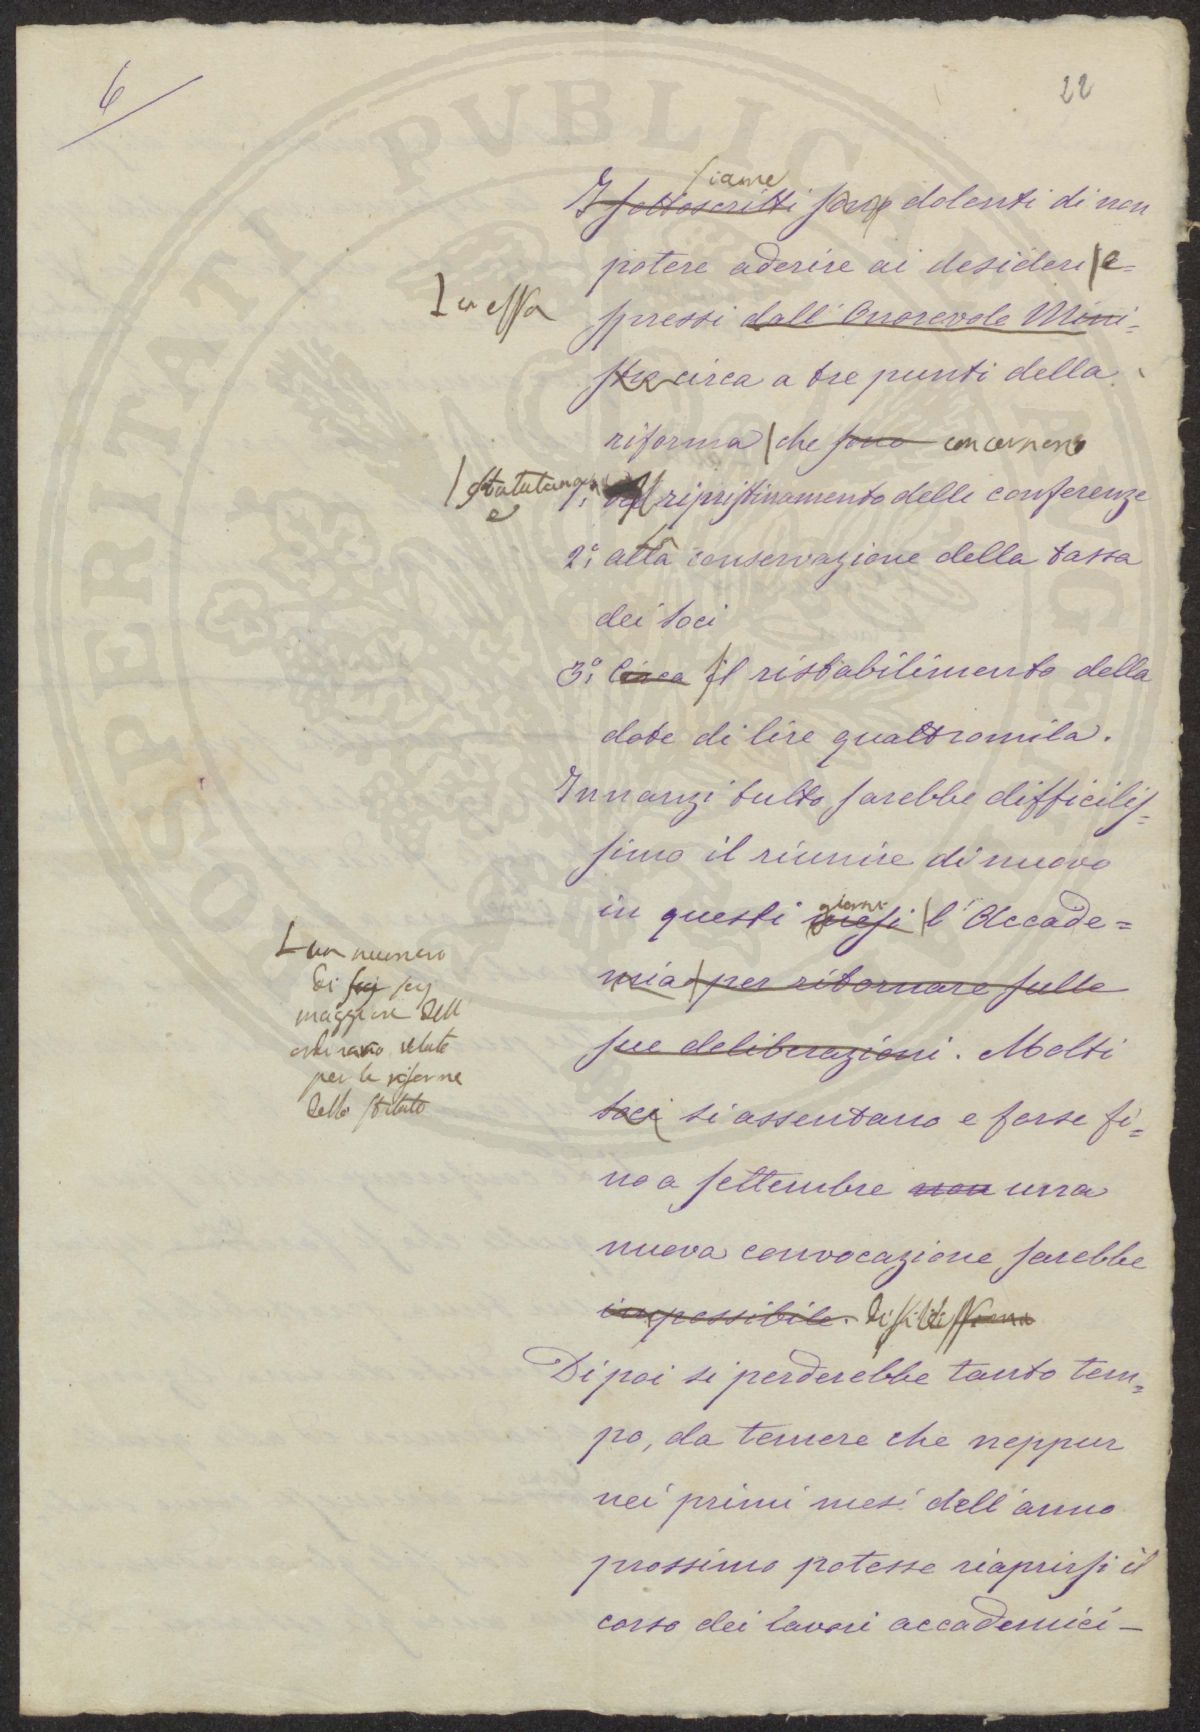 6
22
siamo
I sottoscritti sono dolenti di non
potere aderire ai desideri e=
In essa
spressi dall' Onorevole Mini=
stro circa a tre punti della
riforma che sono concernono
statutaria e
1. ripristinamento delle conferenze
2.° alla conservazione della tassa
dei soci
3.° Circa il ristabilimento della
dote di lire quattromila.
Innanzi tutto sarebbe difficilis=
simo il riunire di nuovo
giorni
in questi mesi l'Accade=
mia per ritornare sulle
sue deliberazioni. Molti
un numero
di soci
maggiore dell'
ordinario
per le riforme
dello Statuto
soci si assentano e forse fi=
no a settembre non una
nuova convocazione sarebbe
impossibile.
Di poi si perderebbe tanto tem=
po, da temere che neppur
nei primi mesi dell'anno
prossimo potesse riaprirsi il
corso dei lavori accademici —
SOSPERITATI PVBLICAE AVGENDAE